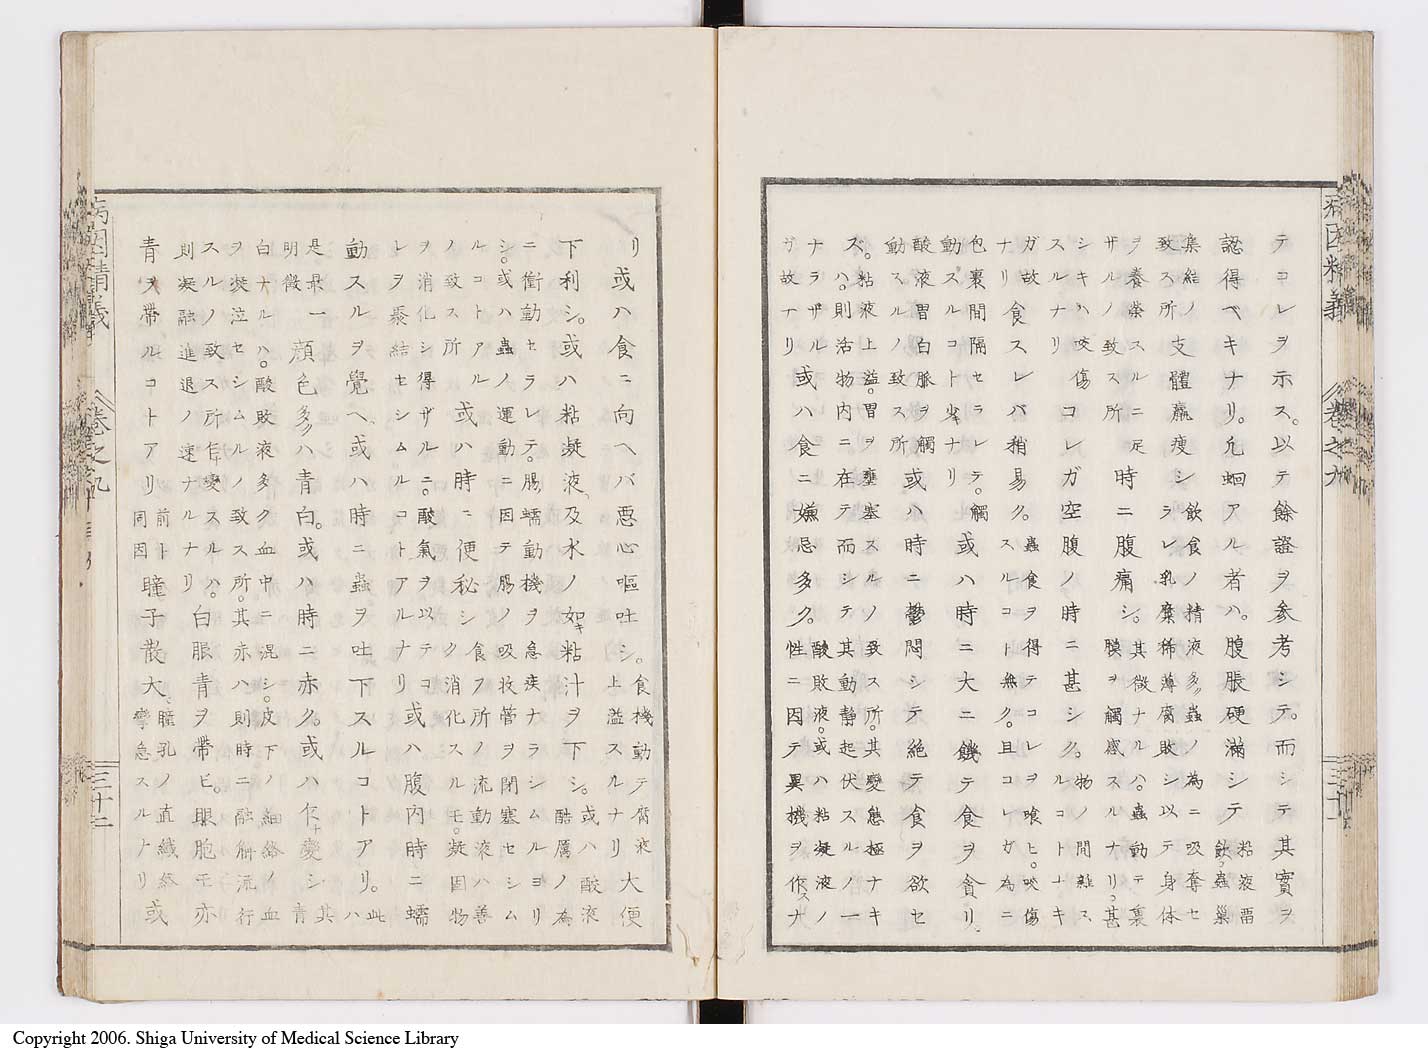 病因精義 巻之九
テコレヲ示ス。以テ餘證ヲ参考シテ。而シテ其實ヲ
認得ベキナリ。凢蛔アル者ハ。腹脹硬滿シテ粘液畱飮。蟲巢
集結ノ致ス所支體羸瘦シ飮食ノ精液多ク蟲ノ為ニ吸奪セラレ乳糜稀薄腐敗シ以テ身体
ヲ養榮スルニ足ザルノ致ス所時ニ腹痛シ。其微ナルハ。蟲動テ裏膜ヲ觸感スルナリ。甚
シキハ咬傷スルナリコレガ空腹ノ時ニ甚シク。物ノ間雑スルコトナキ
ガ故ナリ食スレバ稍易ク。蟲食ヲ得テコレヲ喰ヒ。咬傷スルコト無ク。且コレガ為ニ
包裹間隔セラレテ。觸動スルコト少キナリ或ハ時ニ大ニ饑テ食ヲ貪リ。
酸液胃白脈ヲ觸動スルノ致ス所或ハ時ニ鬱悶シテ絶テ食ヲ欲セ
ス。粘液上溢。胃ヲ壅塞スルノ致ス所。其變態極ナキハ。則活物内ニ在テ而シテ其動靜起伏スルノ一
ナラザルガ故ナリ或ハ食ニ嫌忌多ク。酸敗液。或ハ粘凝液ノ性ニ因テ異機ヲ作スナ
リ或ハ食ニ向ヘバ悪心嘔吐シ。食機動テ腐液上溢スルナリ大便
下利シ。或ハ粘凝液、及水ノ如キ粘汁ヲ下シ。或ハ酸液酷厲ノ為
ニ衝動セラレテ。腸蠕動機ヲ急疾ナラシムルヨリシ。或ハ蟲ノ運動ニ因テ腸ノ吸收管ヲ閉塞セシム
ルコトアルノ致ス所或ハ時ニ便秘シ食フ所ノ流動液ハ善ク消化スルモ。凝固物
ヲ消化シ得ザルニ。酸氣ヲ以テコレヲ聚結セシムルコトアルナリ或ハ。腹内時ニ蠕
動スルヲ覺ヘ、或ハ時ニ蟲ヲ吐下スルコトアリ。此ハ
是最一明徴顔色多クハ青白。或ハ時ニ赤ク。或ハ乍チ變シ其青
白ナルハ。酸敗液多ク血中ニ混シ。皮下ノ細絡ノ血ヲ凝泣セシムルノ致ス所。其赤ハ則時ニ融解流行
スルノ致ス所乍チ變スルハ。則凝融進退ノ速ナルナリ白眼青ヲ帶ビ。眼胞モ亦
青ヲ帶ルコトアリ前ト同因瞳子散大、瞳孔ノ直纎絲攣急スルナリ或
病因精義 巻之九 三十二
Copyright 2006. Shiga University of Medical Science Library